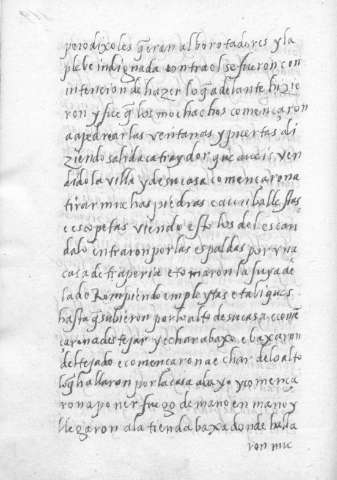 pero dixoles q̃ eran alborotadores y la
plebe indignada contra el se fueron con
intencion de hazer lo q̃ adelante hizie
ron y fue q̃ los mochachos començaron
a apedrear las ventanas y puertas di
ziendo salid aca traydor que aueis ven
dido la villa y de su casa començaron a
tirar muchas piedras e aun ballestas
e escopetas viendo esto los del escan
dalo entraron por las espaldas por vna
casa de traperia e tomaron la suya de
lado Rompiendo empleytas e tabiques
hasta q̃ subieron por lo alto de su casa e comẽ
çaron a destejar y echar abaxo e baxaron
del tejado e comencaron a echar de lo alto
lo q̃ hallaron por la casa abaxo y comença
ron a poner fuego de mano en mano y
llegaron a la tienda baxa donde halla
ron muc